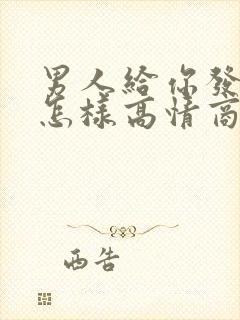 男人給你發
怎樣高情商
西告